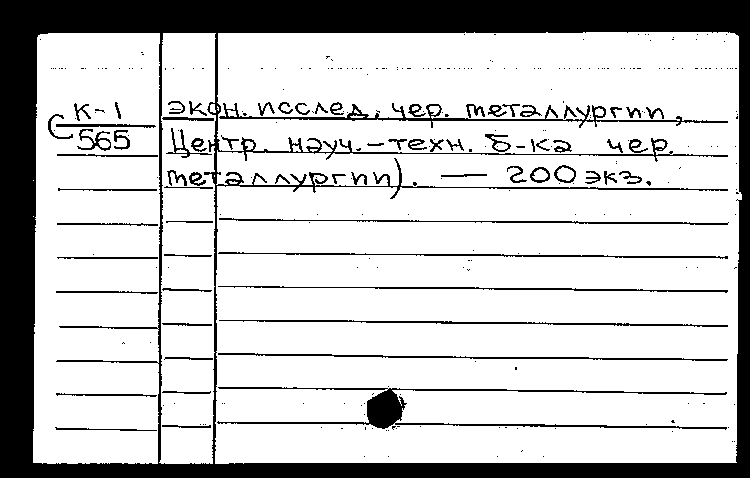 К-1 экон. исслед. чер. металлургии,
С 565 Центр. науч.-техн. б-ка чер.
металлургии). — 200 экз.